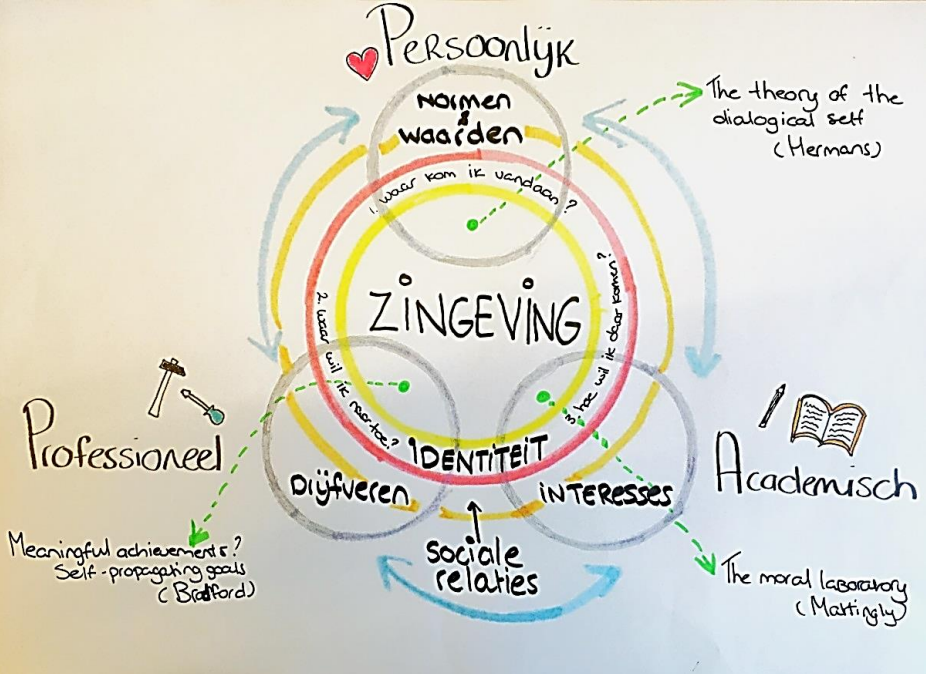 Persoonlijk
Normen
&
waarden
The theory of the
dialogical self
(Hermans)
1. waar kom ik vandaan?
ZINGEVING
2. waar wil ik naar toe?
3. hoe wil ik daar komen?
Professioneel
Academisch
IDENTITEIT
Drijfveren
INTERESSES
sociale
relaties
Meaningful achievements?
Self-propagating goals
(Bradford)
The moral laboratory
(Mattingly)